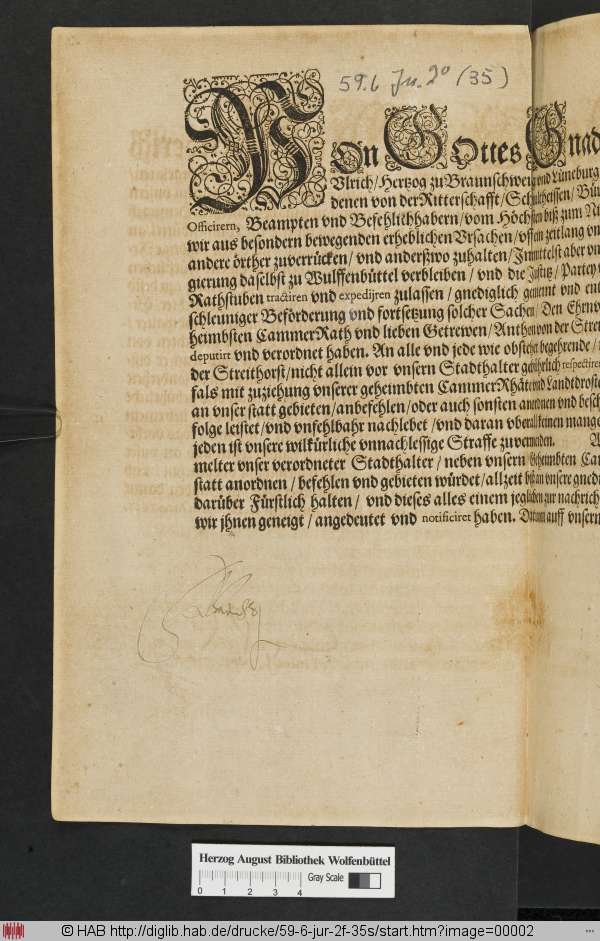 59.6 Jur. 2º (35)
VOn Gottes Gnad
Vlrich/Hertzog zu Braunschweig vnd Lüneburg
denen von der Ritterschafft/Schultheissen/Bür
Officirern, Beampten vnd Befehlichhabern/vom Höchsten biß zum Ni
wir aus besondern bewegenden erheblichen Vrsachen/vff ein zeitlang vn
andere örther zuverrücken/vnd anderßwo zuhalten/Inmittelst aber vn
gierung daselbst zu Wulffenbüttel verbleiben/vnd die Justitz/Partey
Rathstuben tractiren vnd expedijren zulassen/gnediglich gemeint vnd ent
schleuniger Beförderung vnd fortsetzung solcher Sachen/Den Ehrnv
heimbsten CammerRath vnd lieben Getrewen/Anthen von der Stre
deputirt vnd verordnet haben. An alle vnd jede wie obstehet begehrende/
der Streithorst/nicht allein vor vnsern Stadthalter gebührlich respectiren
fals mit zuziehung vnserer geheimbten CammerRhäte vnd Landtdroste
an vnser statt gebieten/anbefehlen/oder auch sonsten anordnen vnd besch
folge leistet/vnd vnfehlbahr nachlebet/vnd daran vberall keinen mange
jeden ist vnsere wilkürliche vnnachlessige Straffe zuvermeiden. A
melter vnser verordneter Stadthalter/neben vnsern Geheimbten Ca
statt anordnen/befehlen vnd gebieten würdet/allzeit biß an vnsere gned
darüber Fürstlich halten/vnd dieses alles einem jeglichen zur nachrich
wir jhnen geneigt/angedeutet vnd notificiret haben. Datum auff vnserm
Herzog August Bibliothek Wolfenbüttel
0 1 2 3 4 Gray Scale
© HAB http://diglib.hab.de/drucke/59-6-jur-2f-35s/start.htm?image=00002